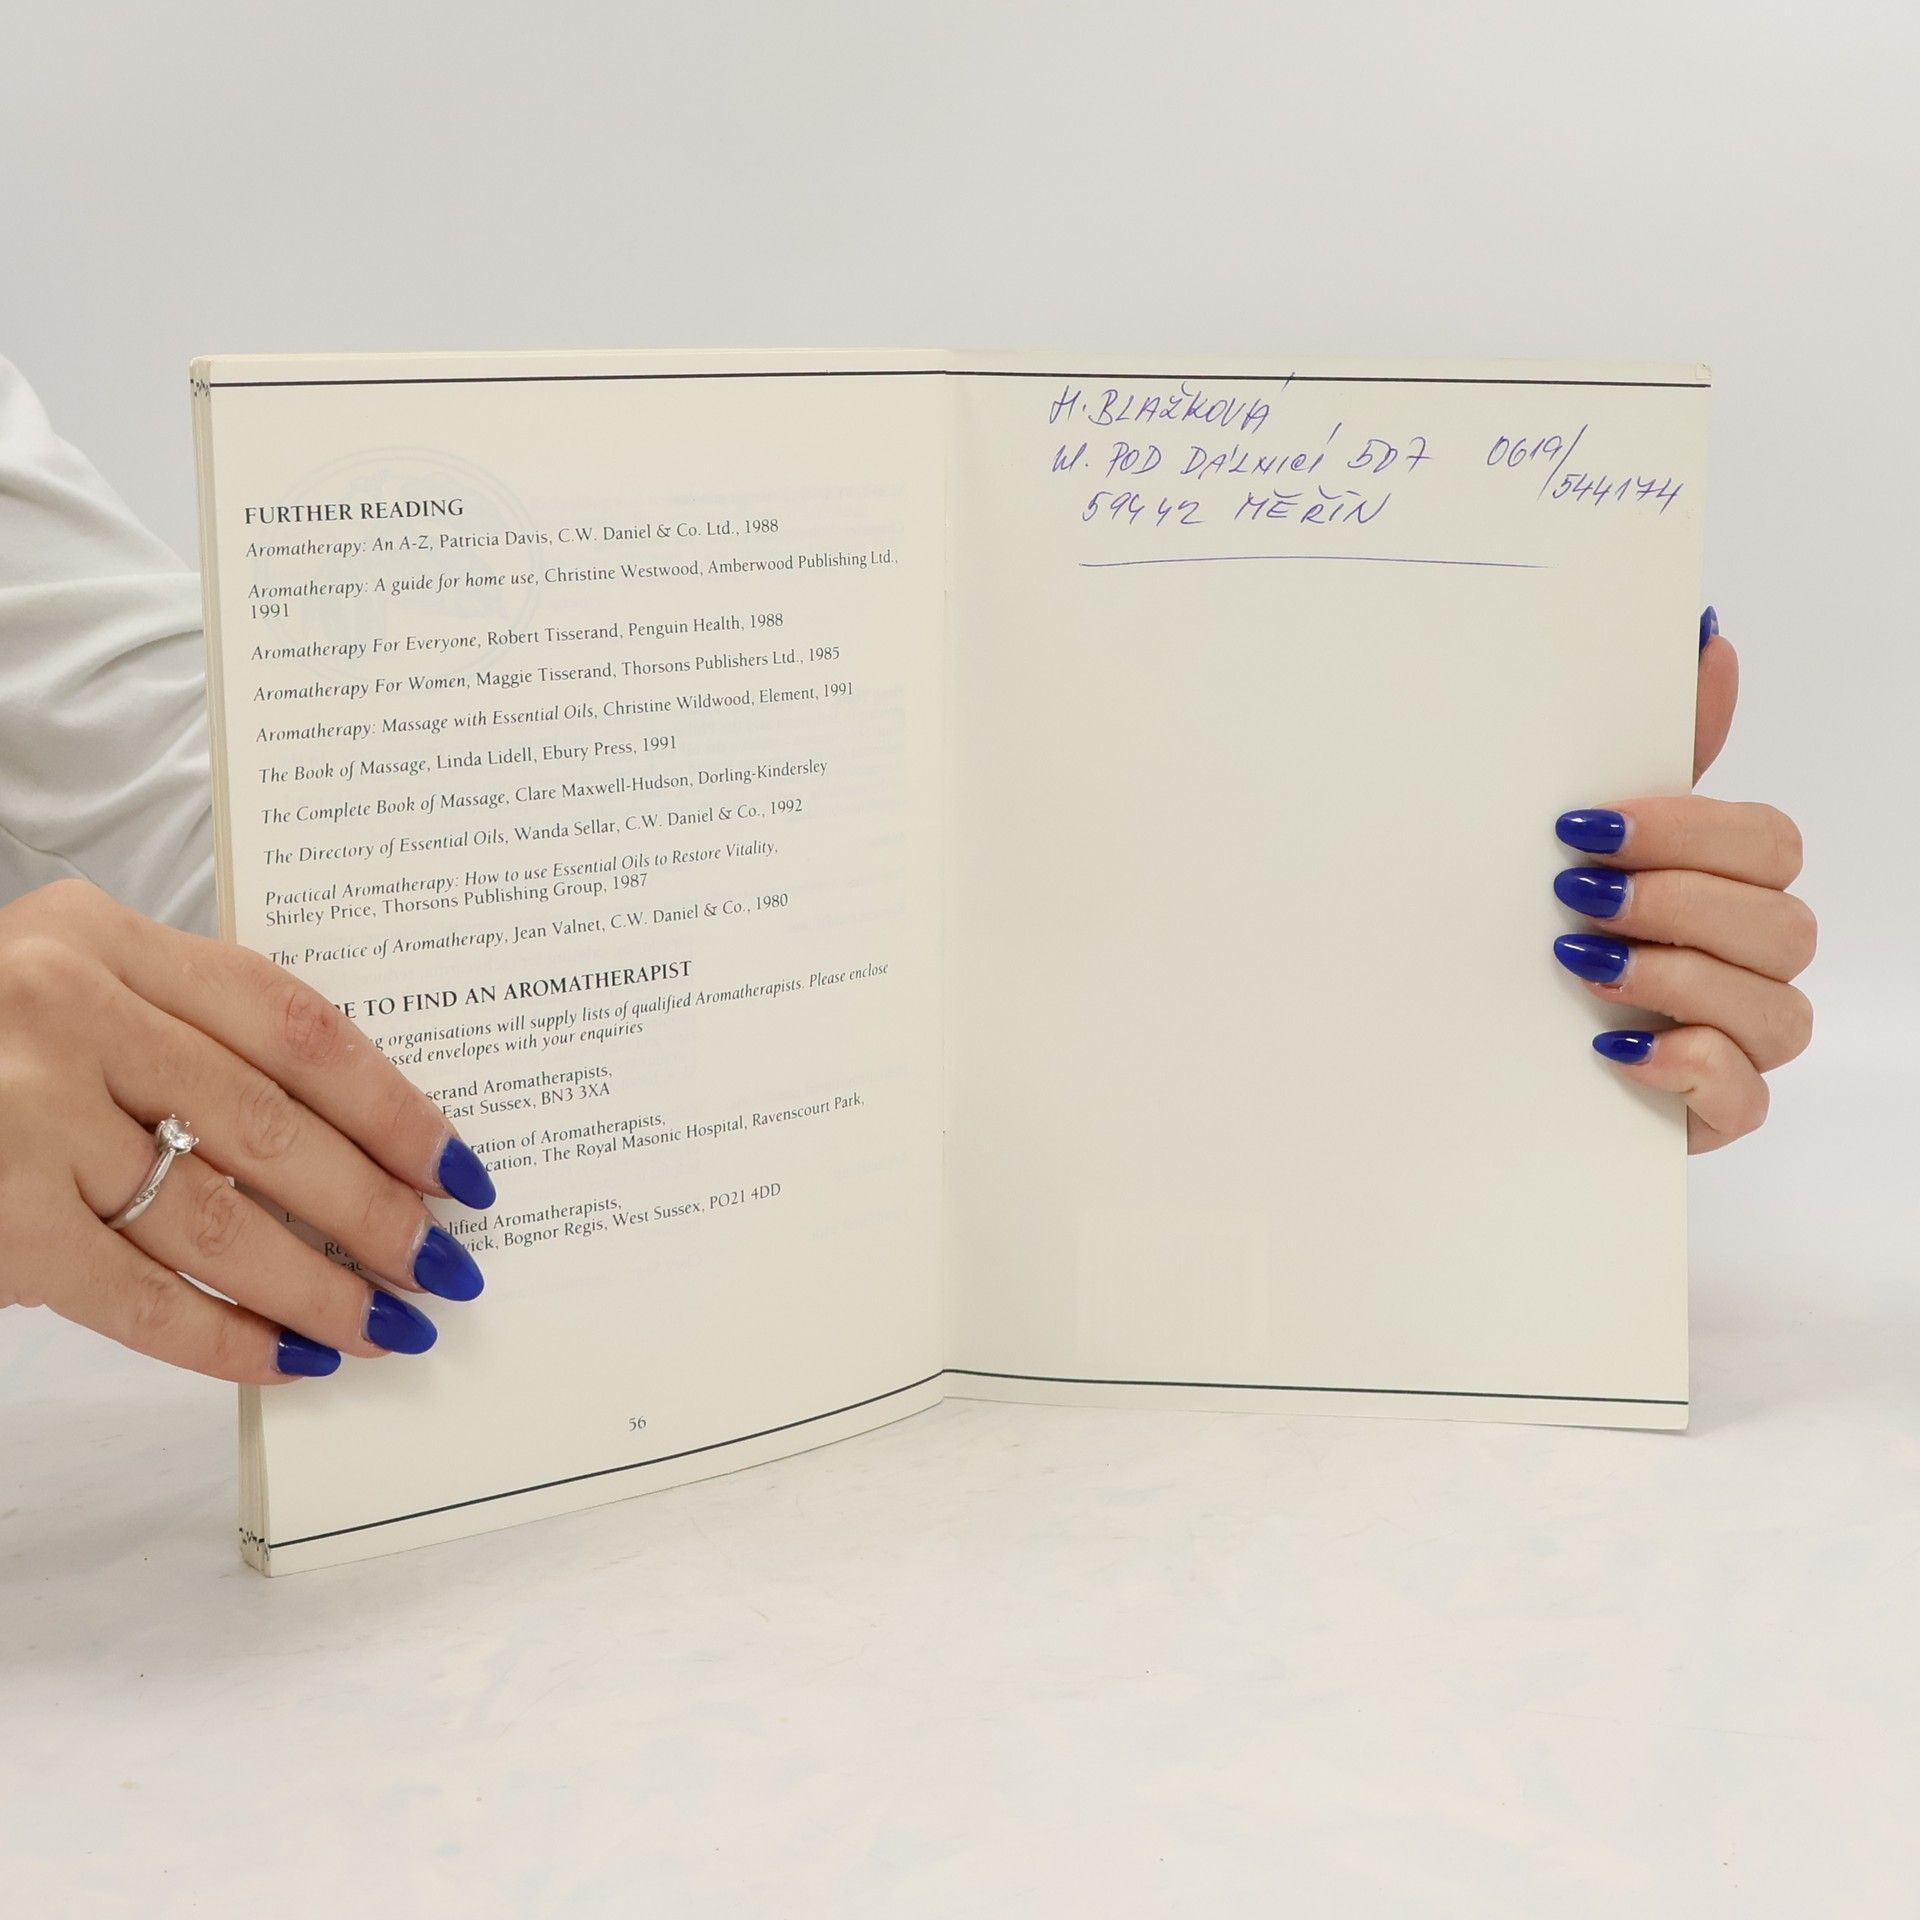 FURTHER READING
Aromatherapy: An A-Z, Patricia Davis, C.W. Daniel & Co. Ltd., 1988
Aromatherapy: A guide for home use, Christine Westwood, Amberwood Publishing Ltd.,
1991
Aromatherapy For Everyone, Robert Tisserand, Penguin Health, 1988
Aromatherapy For Women, Maggie Tisserand, Thorsons Publishers Ltd., 1985
Aromatherapy: Massage with Essential Oils, Christine Wildwood, Element, 1991
The Book of Massage, Linda Lidell, Ebury Press, 1991
The Complete Book of Massage, Clare Maxwell-Hudson, Dorling-Kindersley
The Directory of Essential Oils, Wanda Sellar, C.W. Daniel & Co., 1992
Practical Aromatherapy: How to use Essential Oils to Restore Vitality,
Shirley Price, Thorsons Publishing Group, 1987
The Practice of Aromatherapy, Jean Valnet, C.W. Daniel & Co., 1980
TO FIND AN AROMATHERAPIST
organisations will supply lists of qualified Aromatherapists. Please enclose
envelopes with your enquiries
Aromatherapists,
East Sussex, BN3 3XA
of Aromatherapists,
The Royal Masonic Hospital, Ravenscourt Park,
Aromatherapists,
Bognor Regis, West Sussex, PO21 4DD
56
H. BLAŽKOVÁ
Ul. POD DÁLNICÍ 507 0619/
/544174
59442 MĚŘÍN